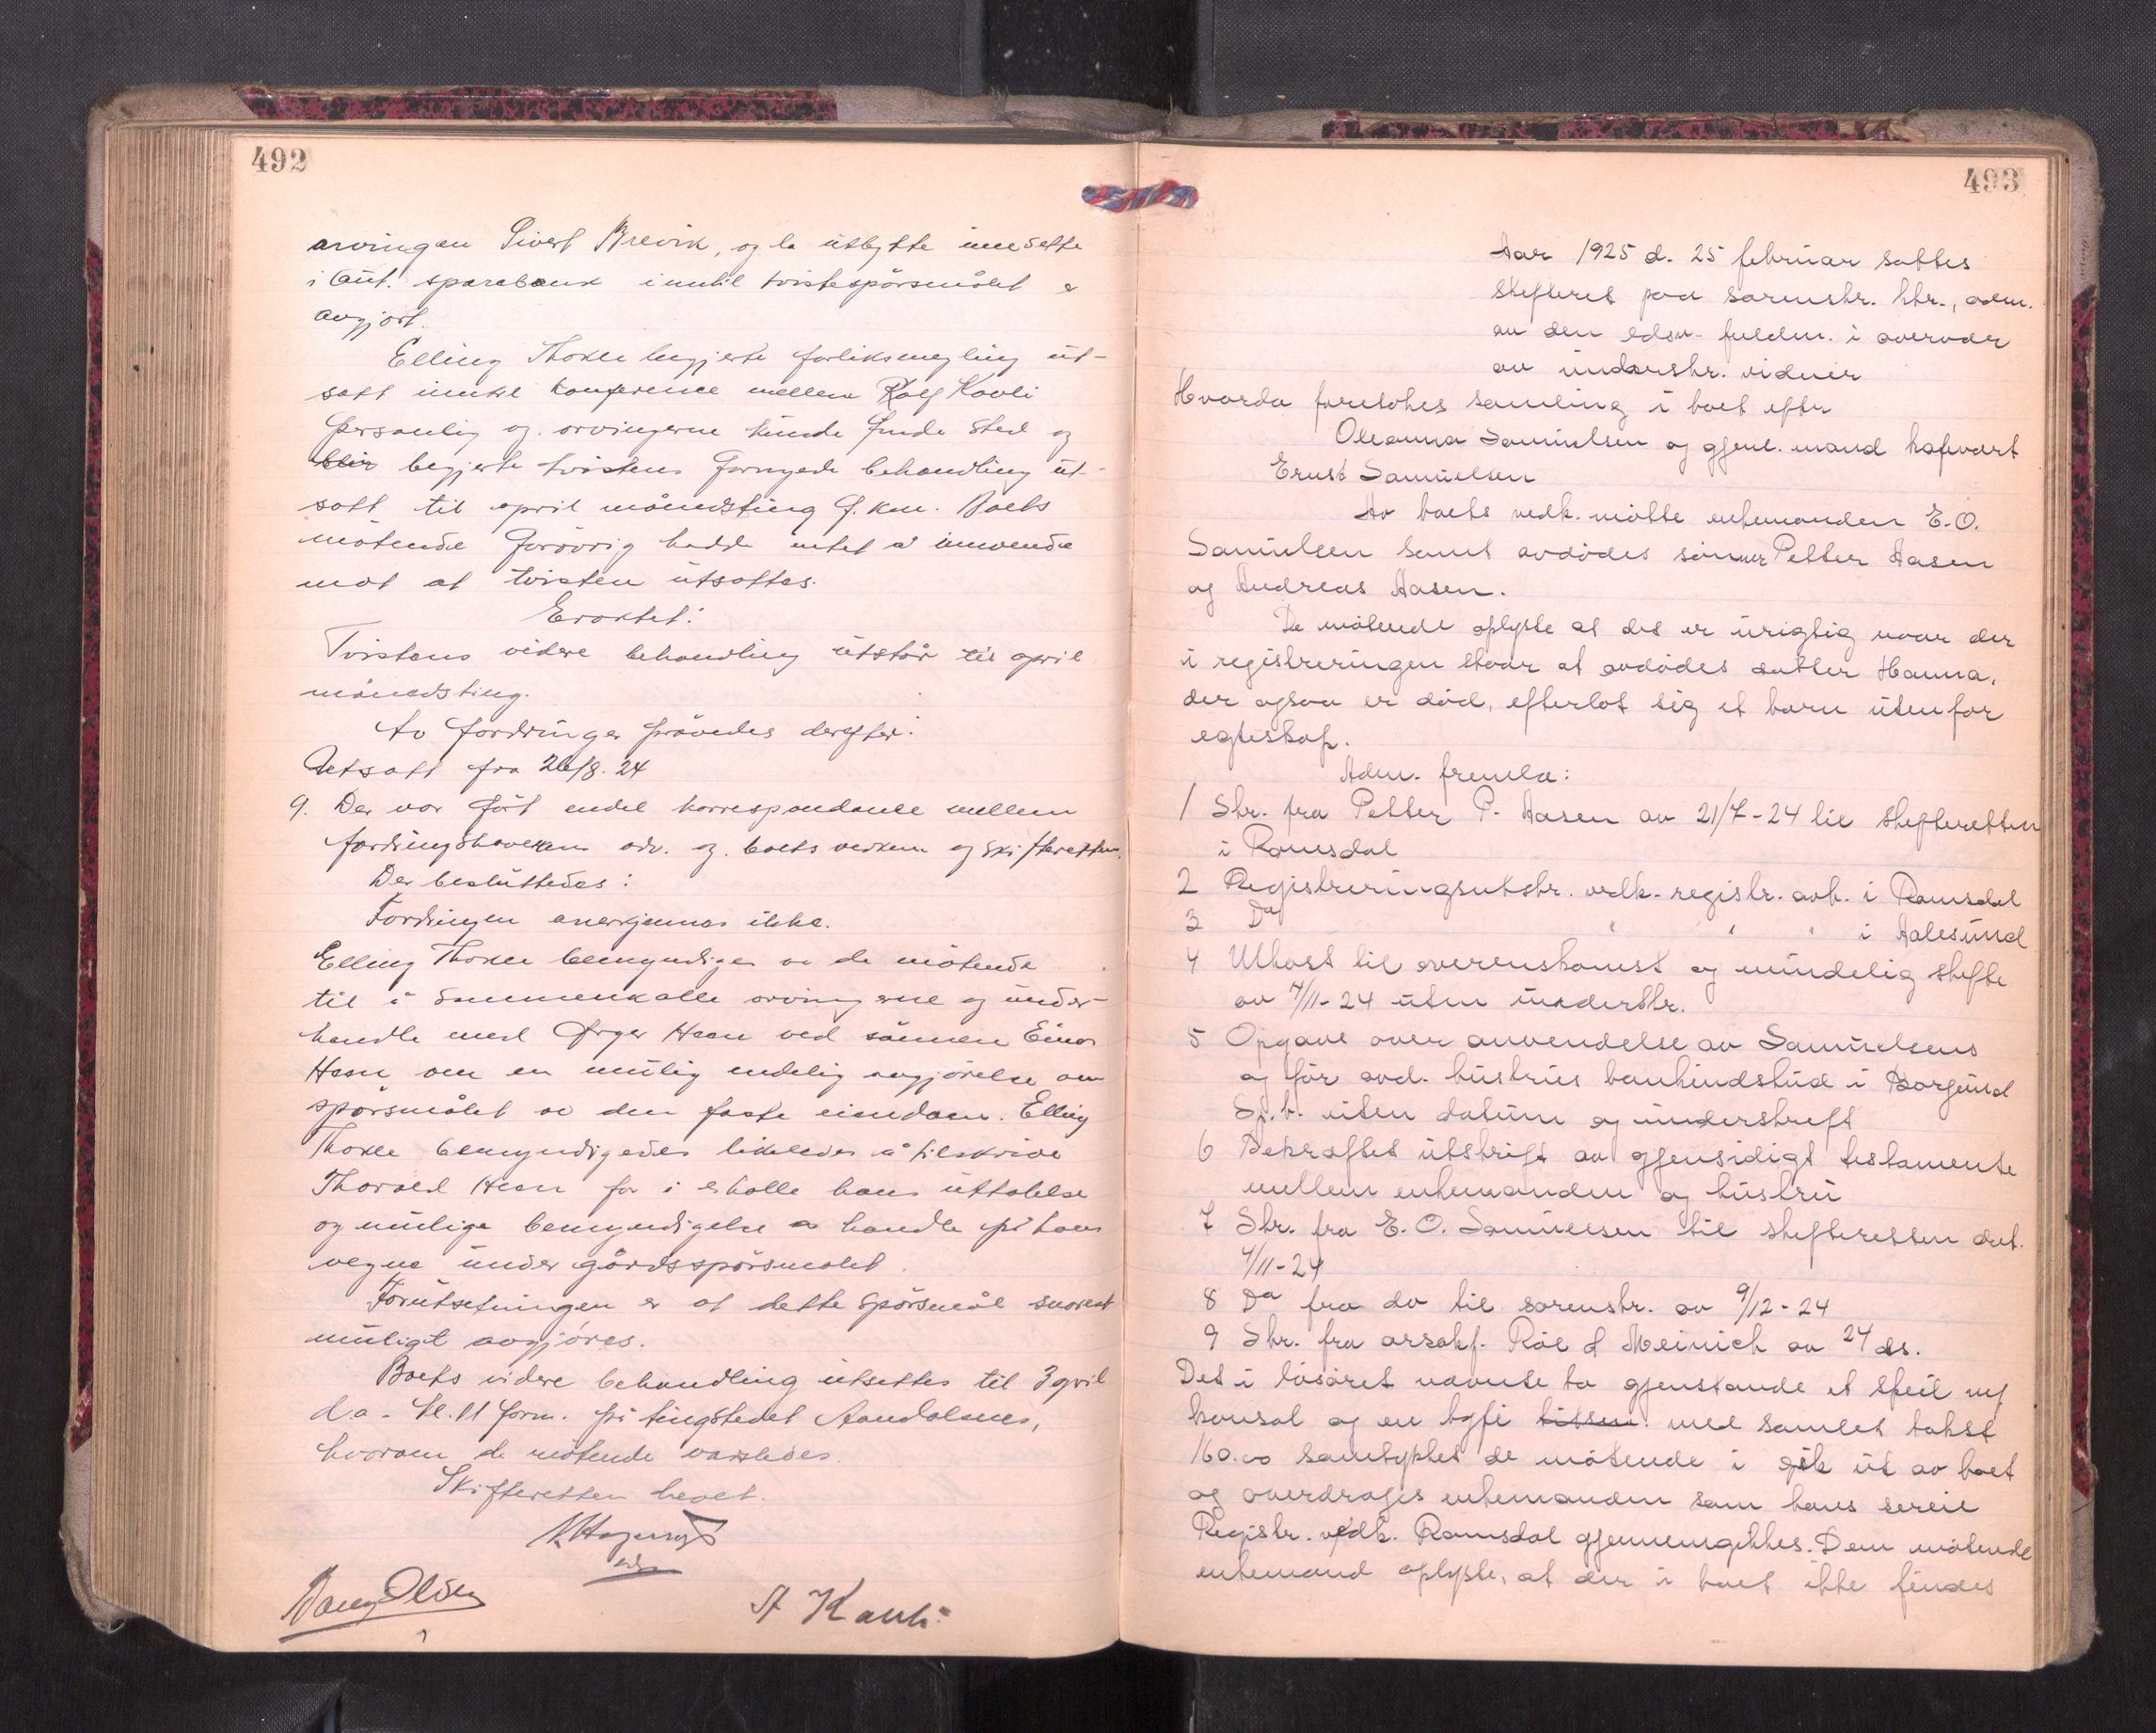 492
arvingen Sivert Brevik, og la utbytte inedsette
i Aut. sparebank inntil tvistespörsmålet e
avgjort.
Elling Thokle begjerte forliksmegling ut-
satt inntil konference mellem Rolf Kavli
personlig og arvingerne kunde finde sted og
begjerte tvistens fornyede behandling ut-
satt til april månedsting f. km. Boets
mötende forövrig hadde intet å invende
mot at tvisten utsattes.
Eraktet:
Tvistens videre behandling utstår til april
månedsting.
Av fordringer prövedes derefter:
Utsatt fra 26/8. 24
9. Der var fört endel korrespondance mellem
fordingshaverens adv. og boets vedkom og skifteretten.
Der besluttedes:
Fordringen anerkjennes ikke.
Elling Thokle bemyndiges av de mötende
til å sammenkalle arvingerne og under-
handle med Birger Heen ved sönnen Einar
Heen om en mulig endelig avgjörelse om
spörsmålet av den faste eiendom. Elling
Thokle bemyndigedes likeledes å tilskrive
Thorvald Heen for i eholle hans uttalelse
og mulige bemyndigelse a handle på hans
vegne under gårdsspörsmålet.
Forutsetningen er at dette spörsmål snarest
muligt avgjöres.
Boets videre behandling utsettes til 3 april
d.a. kl. 11 form. på tingstedet Aandalsnes,
hvorom de mötende varsledes.
Skifteretten hevet.
A Kavli
493
Aar 1925 d. 25 februar sattes
skifteret paa sorenskr. ktr., adm.
av den edsv. fuldm. i overvær
av underskr. vidner
Hvorda foretokes samling i boet efter
Oleanna Samuelsen og gjenl. mand hapvært
Ernst Samuelsen
Av boets vedk. mötte enkemanden E. O.
Samuelsen samt avdödes sönner Petter Aasen
og Andreas Aasen.
De mötende oplyste at det er urigtig naar der
i registreringen staar at avdödes datter Hanna,
der ogsaa er död, efterlot sig et barn utenfor
egteskap.
Adm. fremla:
1 Skr. fra Petter P. Aasen av 21/7-24 til skifteretten
i Romsdal
2 Registreringsutskr. vedk. registr. avh. i Romsdal
3 Do " " " i Aalesund
4 Utkast til overenskomst og mindelig skifte
av 4/11-24 uten underskr.
5 Opgave over anvendelse av Samuelsens
og för avd. hustrus bankindskud i Borgund
Sp.b. uten datum og underskrift
6 Bekræftet utskrift av gjensidigt testamente
mellem enkemanden og hustru
7 Skr. fra E. O. Samuelsen til skifteretten dat.
4/11-24
8 Do fra do til sorenskr. av 9/12-24
9 Skr. fra o.r.sakf. Roll & Meinich av 24 ds.
Det i lösöret nævnte to gjenstande et speil m/
konsol og en typi med samlet takst
160.00 samtyktes de mötende i gik ut av boet
og overdrages enkemanden som hans sereie
Registr. vedk. Romsdal gjennemgikkes. Den mötende
enkemand oplyste, at der i boet ikke findes